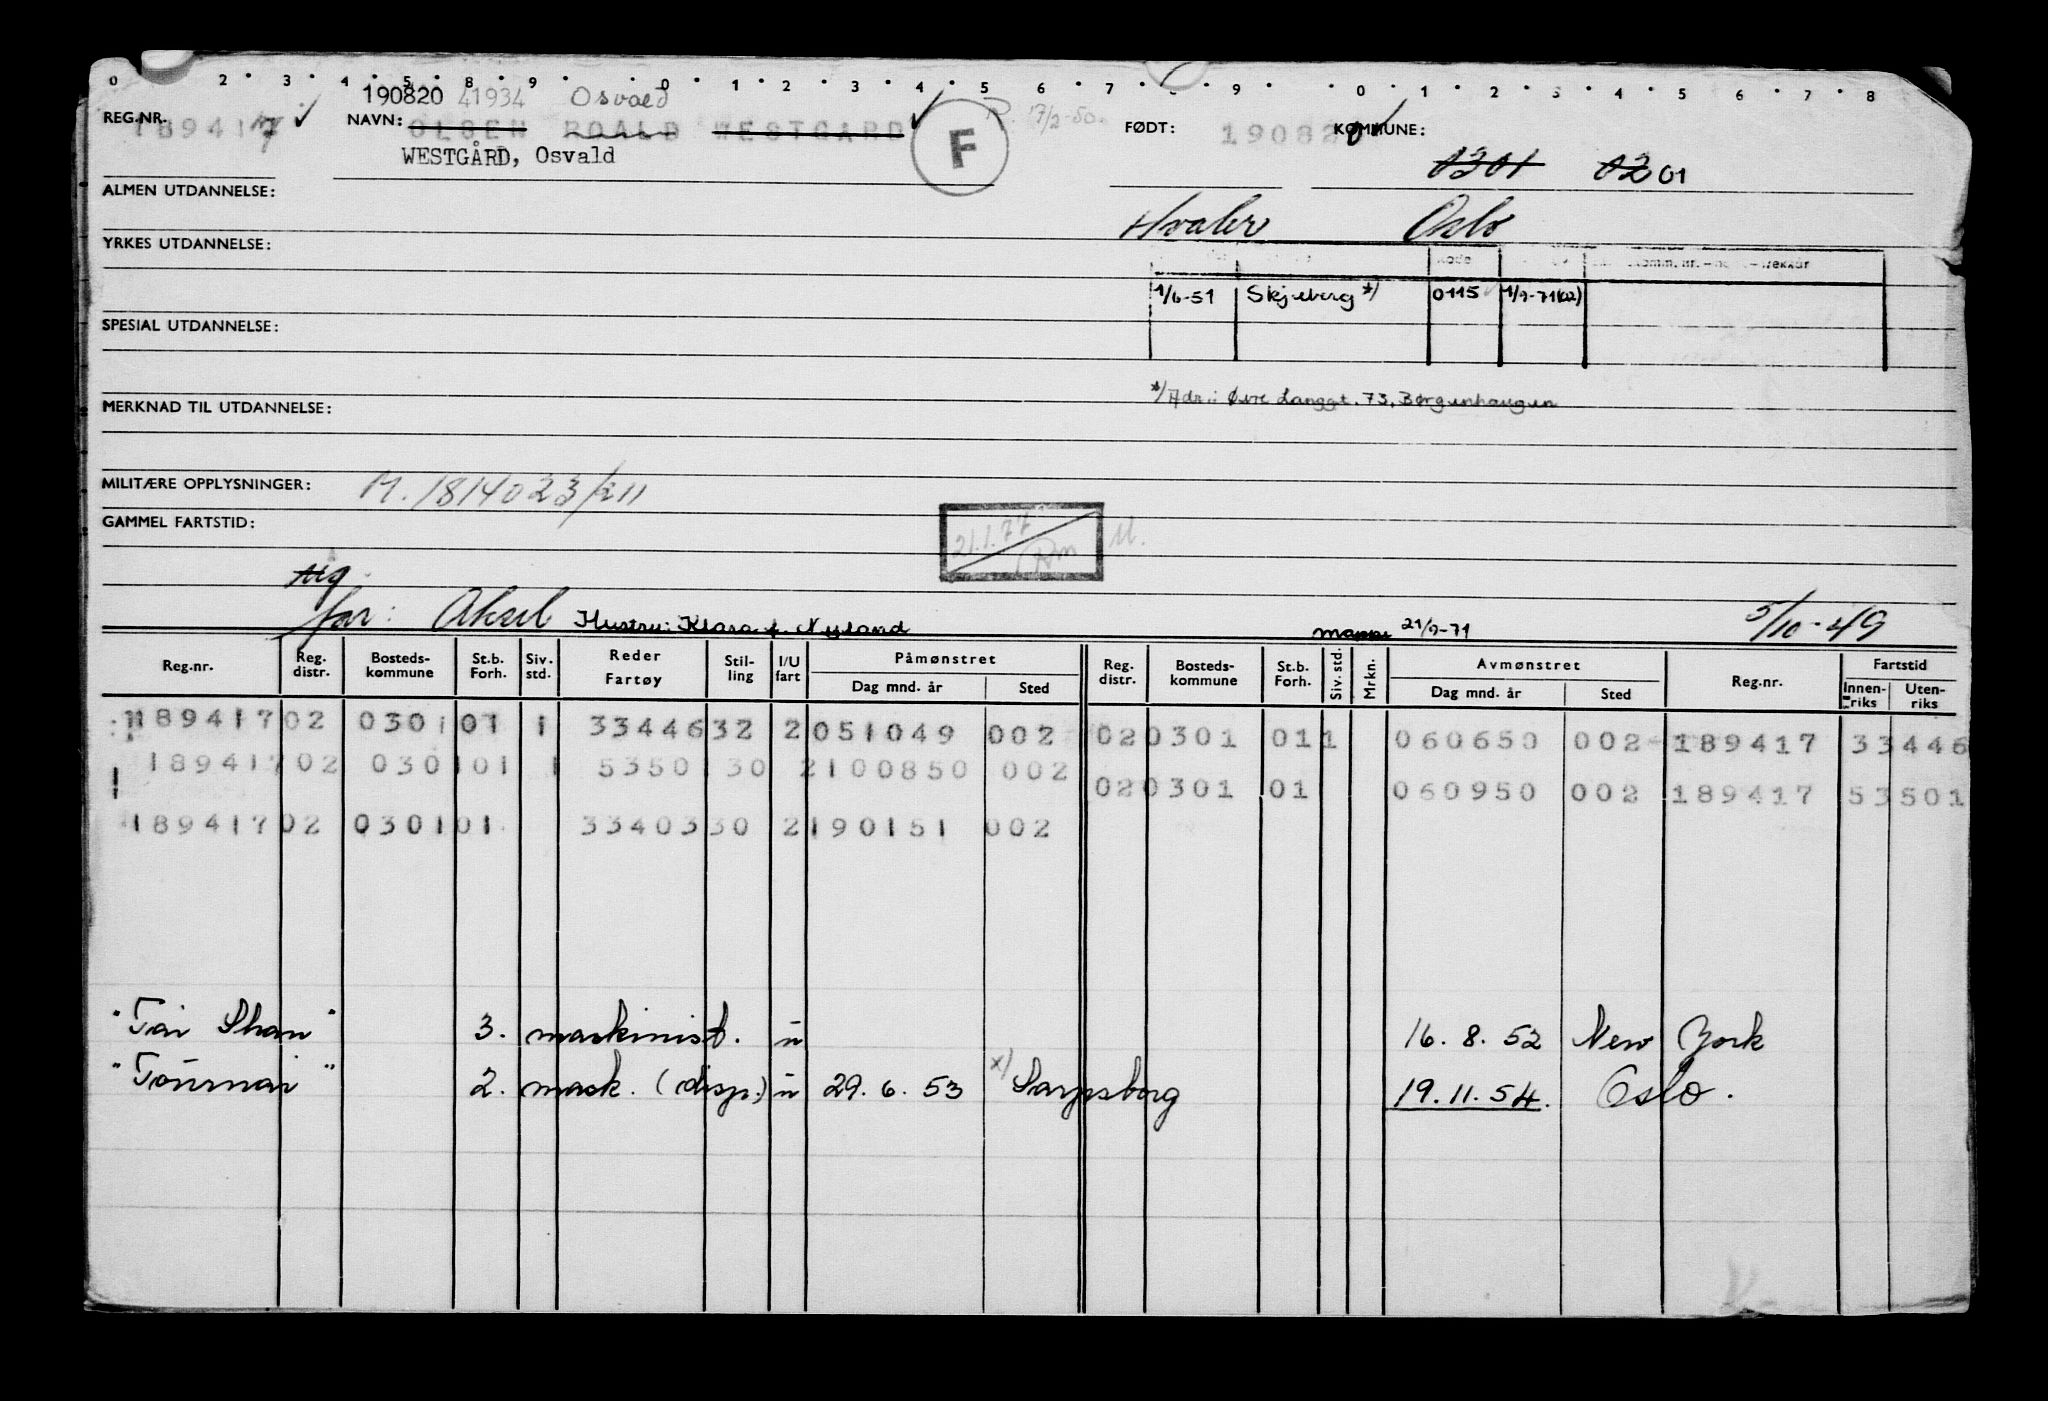 0 2 3 4 5 8 9 0 1 2 3 4 5 6 7 9 0 1 2 3 4 5 6 7 8
190820 41934 Osvald
REG.NR. 189417 NAVN: OLSEN ROALD WESTGARD F 17/2-50. FØDT: 190820 KOMMUNE:
WESTGÅRD, Osvald
0301 02 01
ALMEN UTDANNELSE:
Hvaler Oslo
YRKES UTDANNELSE:
Kode
1/6-51 Skjeberg *) 0115 1/9-71(02)
SPESIAL UTDANNELSE:
*) Adr.: Øvre Langgt. 73, Borgenhaugen
MERKNAD TIL UTDANNELSE:
MILITÆRE OPPLYSNINGER: M. 1814023/211
GAMMEL FARTSTID:
21.1.77 M.
far: Aksel Hustru: Klara f. Nyland mappe 21/9-71 5/10-49
Reg.nr. Reg. distr. Bosteds- kommune St.b. Forh. Siv. std. Reder Fartøy Stil- ling I/U fart Påmønstret Dag mnd. år Sted Reg. distr. Bosteds- kommune St.b. Forh. Siv. std. Mrkn. Avmønstret Dag mnd. år Sted Reg.nr. Fartstid Innen- riks Uten- riks
189417 02 0301 01 1 33446 32 2 051049 002 02 0301 01 1 060650 002 189417 33446
189417 02 0301 01 1 53501 30 2 100850 002 02 0301 01 060950 002 189417 53501
189417 02 0301 01 33403 30 2 190151 002
"Tai Shan" 3. maskinist. u 16.8.52 New York
"Tournai" 2. mask. (disp.) u 29.6.53 x) Sarpsborg 19.11.54. Oslo.